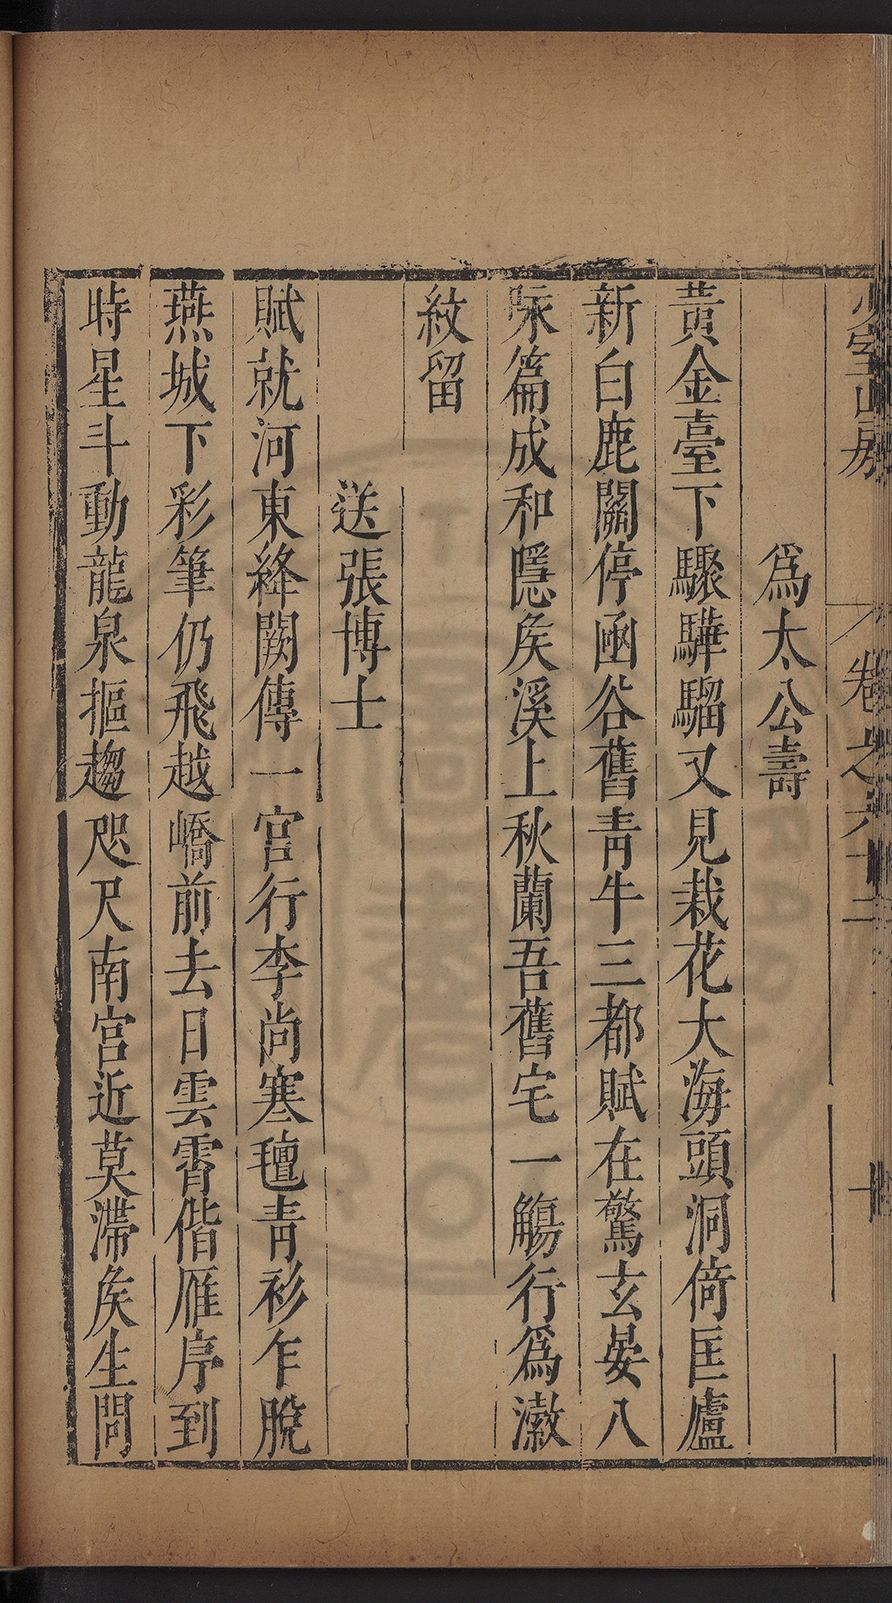 少室山房
卷之六十二
十
爲太公壽
黃金臺下驟驊騮又見栽花大海頭洞倚匡廬
新白鹿關停函谷舊青牛三都賦在驚玄晏八
咏篇成和隱矦溪上秋蘭吾舊宅一觴行爲瀫
紋留
送張博士
賦就河東絳闕傳一官行李尚寒氊青衫乍脫
燕城下彩筆仍飛越嶠前去日雲霄偕雁序到
時星斗動龍泉摳趨咫尺南宮近莫滯矦生問